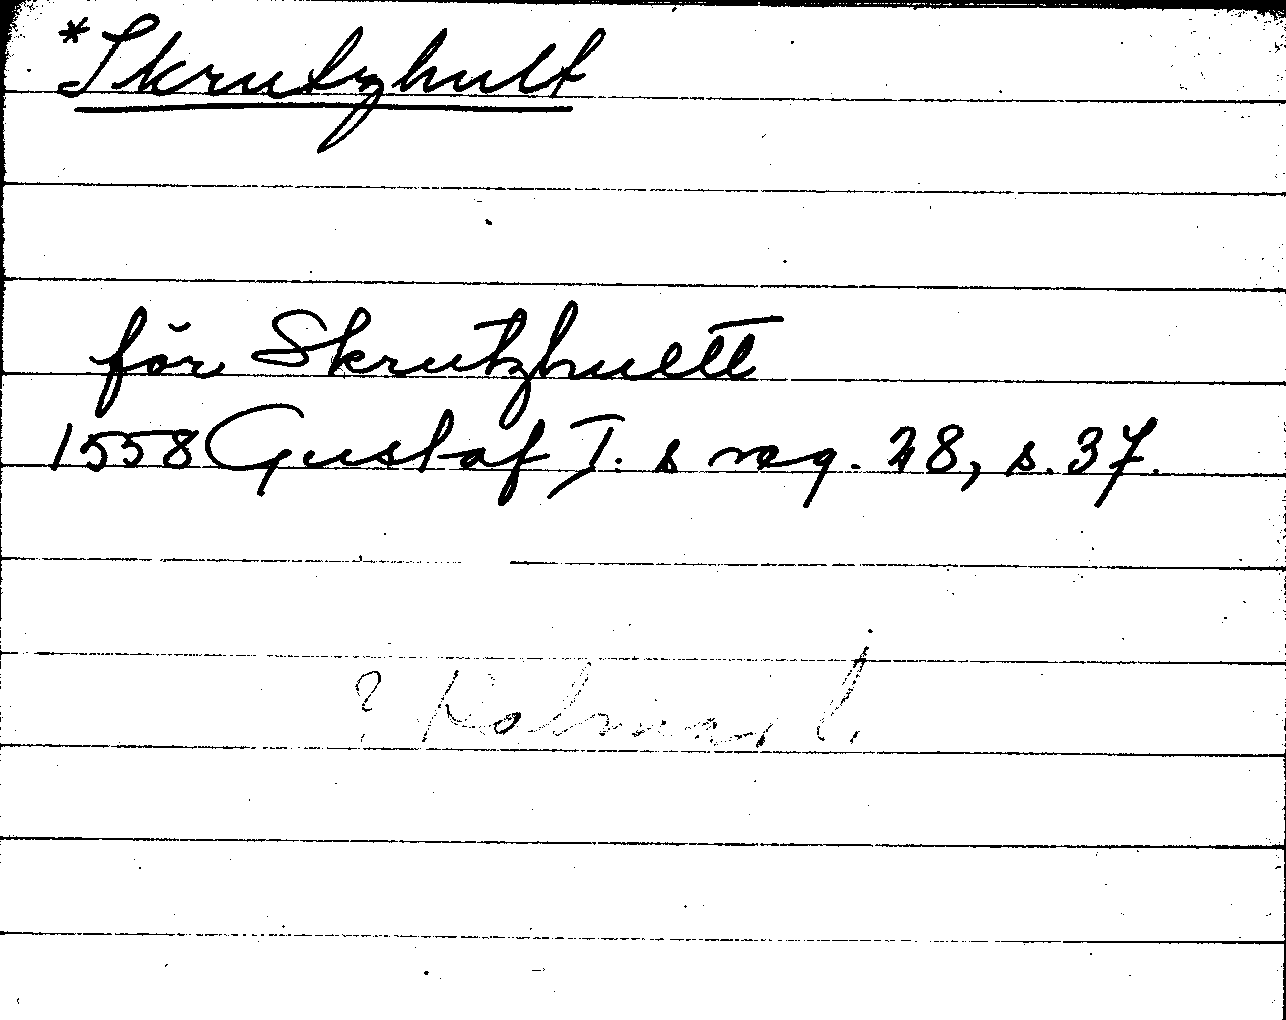 *Skrutzhult
för Skrutzhultt
1558 Gustaf I. s reg. 28, s. 37.
? Kalmar l.